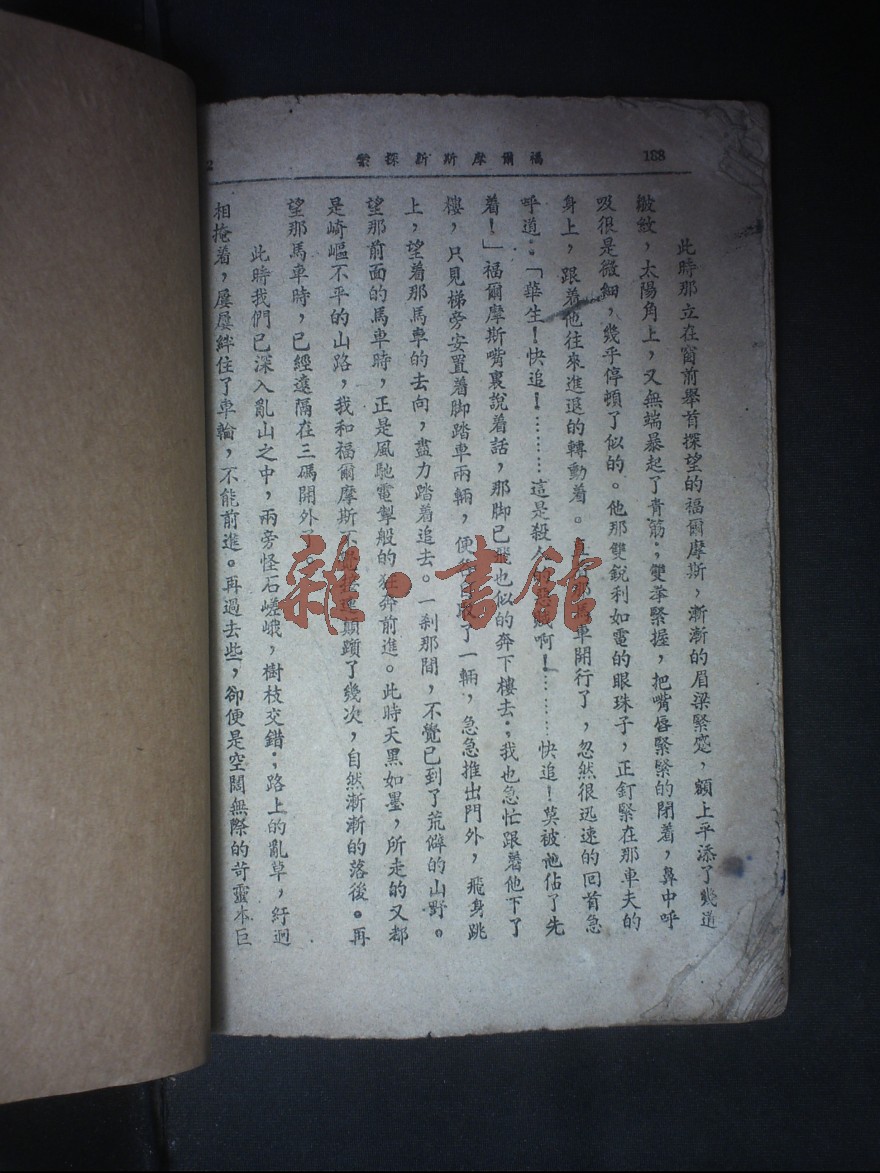 188
福爾摩斯新探案
2
此時那立在窗前舉首探望的福爾摩斯，漸漸的眉梁緊蹙，額上平添了幾道
皺紋，太陽角上，又無端暴起了青筋；雙拳緊握，把嘴唇緊緊的閉着，鼻中呼
吸很是微細，幾乎停頓了似的。他那雙銳利如電的眼珠子，正釘緊在那車夫的
身上，跟着他往來進退的轉動着。馬車開行了，忽然很迅速的回首急
呼道：「華生！快追！………這是殺人啊！………快追！莫被他佔了先
着！」福爾摩斯嘴裏說着話，那脚已飛也似的奔下樓去；我也急忙跟着他下了
樓，只見梯旁安置着脚踏車兩輛，便了一輛，急急推出門外，飛身跳
上，望着那馬車的去向，盡力踏着追去。一剎那間，不覺已到了荒僻的山野。
望那前面的馬車時，正是風馳電掣般的狂奔前進。此時天黑如墨，所走的又都
是崎嶇不平的山路，我和福爾摩斯不顛躓了幾次，自然漸漸的落後。再
望那馬車時，已經遠隔在三碼開外了。
此時我們已深入亂山之中，兩旁怪石嵯峨，樹枝交錯；路上的亂草，紆迴
相掩着，屢屢絆住了車輪，不能前進。再過去些，卻便是空闊無際的苛靈本巨
雜·書館